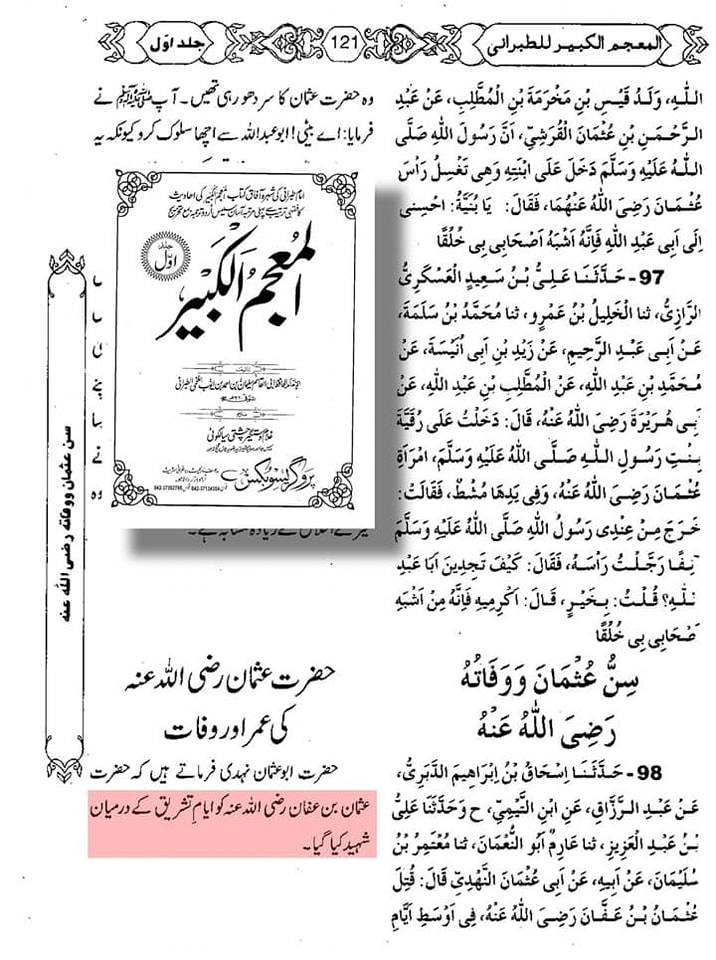 المعجم الكبير للطبرانی
121
جلد اوّل
اللّٰهِ، وَلَدُ قَيْسِ بْنِ مَخْرَمَةَ بْنِ الْمُطَّلِبِ، عَنْ عَبْدِ
الرَّحْمٰنِ بْنِ عُثْمَانَ الْقُرَشِيِّ، اَنَّ رَسُولَ اللّٰهِ صَلَّى
اللّٰهُ عَلَيْهِ وَسَلَّمَ دَخَلَ عَلَى ابْنَتِهِ وَهِيَ تَغْسِلُ رَاْسَ
عُثْمَانَ رَضِيَ اللّٰهُ عَنْهُمَا، فَقَالَ: يَا بُنَيَّةُ: احْسِنِي
اِلَى اَبِي عَبْدِ اللّٰهِ فَاِنَّهُ اَشْبَهُ اَصْحَابِي بِي خُلُقًا
97- حَدَّثَنَا عَلِيُّ بْنُ سَعِيدٍ الْعَسْكَرِيُّ
الرَّازِيُّ، ثنا الْخَلِيلُ بْنُ عَمْرٍو، ثنا مُحَمَّدُ بْنُ سَلَمَةَ،
عَنْ اَبِي عَبْدِ الرَّحِيمِ، عَنْ زَيْدِ بْنِ اَبِي اُنَيْسَةَ، عَنْ
مُحَمَّدِ بْنِ عَبْدِ اللّٰهِ، عَنِ الْمُطَّلِبِ بْنِ عَبْدِ اللّٰهِ، عَنْ
بِي هُرَيْرَةَ رَضِيَ اللّٰهُ عَنْهُ، قَالَ: دَخَلْتُ عَلَى رُقَيَّةَ
بِنْتِ رَسُولِ اللّٰهِ صَلَّى اللّٰهُ عَلَيْهِ وَسَلَّمَ، امْرَاَةِ
عُثْمَانَ رَضِيَ اللّٰهُ عَنْهُ، وَفِي يَدِهَا مُشْطٌ، فَقَالَتْ:
خَرَجَ مِنْ عِنْدِي رَسُولُ اللّٰهِ صَلَّى اللّٰهُ عَلَيْهِ وَسَلَّمَ
نِفًا رَجَّلْتُ رَاْسَهُ، فَقَالَ: كَيْفَ تَجِدِينَ اَبَا عَبْدِ
للّٰهِ؟ قُلْتُ: بِخَيْرٍ، قَالَ: اَكْرِمِيهِ فَاِنَّهُ مِنْ اَشْبَهِ
صْحَابِي بِي خُلُقًا
سِنُّ عُثْمَانَ وَوَفَاتُهُ
رَضِيَ اللّٰهُ عَنْهُ
98- حَدَّثَنَا اِسْحَاقُ بْنُ اِبْرَاهِيمَ الدَّبَرِيُّ،
عَنْ عَبْدِ الرَّزَّاقِ، عَنِ ابْنِ التَّيْمِيِّ، ح وَحَدَّثَنَا عَلِيُّ
بْنُ عَبْدِ الْعَزِيزِ، ثنا عَارِمٌ اَبُو النُّعْمَانِ، ثنا مُعْتَمِرُ بْنُ
سُلَيْمَانَ، عَنْ اَبِيهِ، عَنْ اَبِي عُثْمَانَ النَّهْدِيِّ قَالَ: قُتِلَ
عُثْمَانُ بْنُ عَفَّانَ رَضِيَ اللّٰهُ عَنْهُ، فِي اَوْسَطِ اَيَّامِ
وہ حضرت عثمان کا سر دھو رہی تھیں۔ آپ ﷺ نے
فرمایا: اے بیٹی! ابوعبداللہ سے اچھا سلوک کرو کیونکہ یہ
امام طبرانی کی شہرہ آفاق کتاب المعجم الکبیر کی احادیث
المعجم الکبیر
جلد اوّل
حضرت عثمان رضی اللہ عنہ
کی عمر اور وفات
حضرت ابوعثمان نہدی فرماتے ہیں کہ حضرت
عثمان بن عفان رضی اللہ عنہ کو ایام تشریق کے درمیان
شہید کیا گیا۔
سن عثمان ووفاته رضی اللہ عنہ